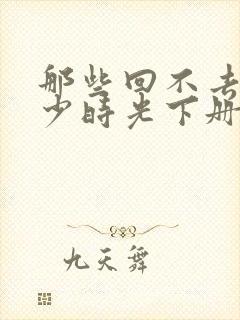 那些回不去
少时光下册
九天舞